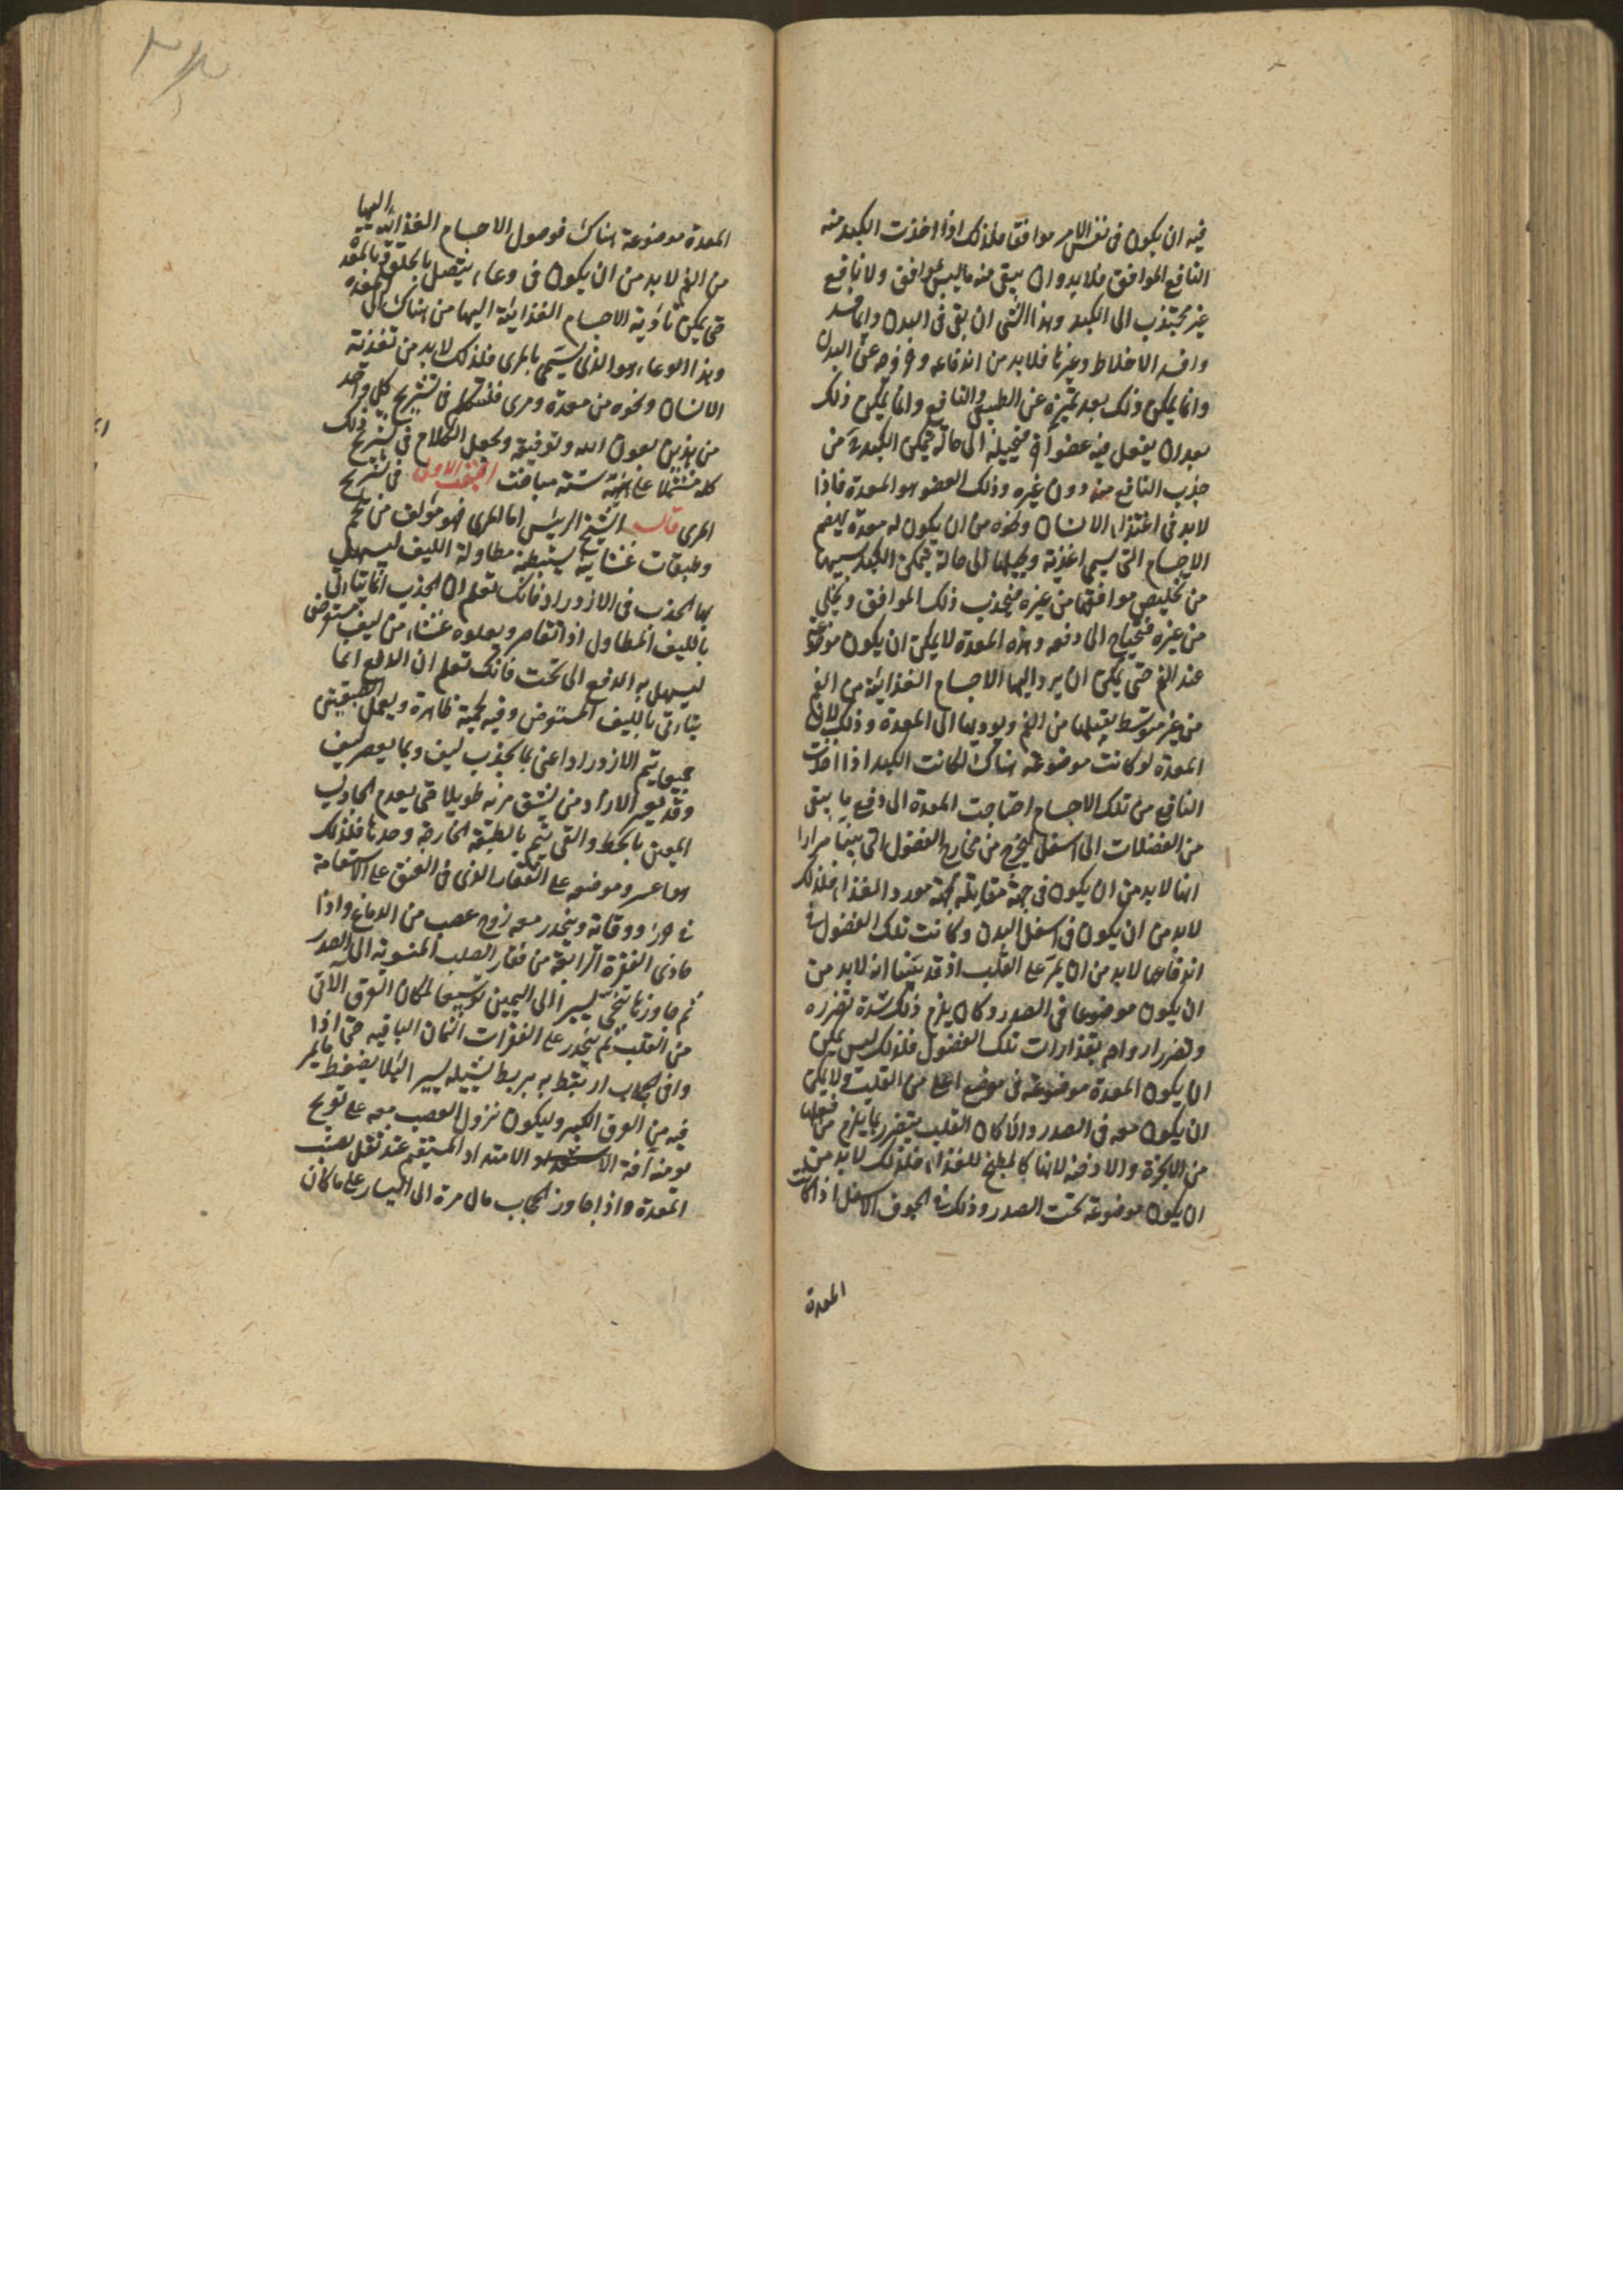 فيه ان يكون فى نفس الامر موافقا فلذلك اذا اخذت الكبد منه
النافع الموافق فلا بد وان يبقى منه ما ليس بموافق ولا نافع
غير مجتذب الى الكبد وهذا الشى ان بقى فى البدن دايما فسد
وافسد الاخلاط وغيرها فلا بد من اندفاعه وخروجه عن البدن
وانما يمكن ذلك بعد تميزه عن الطيب والنافع وانما يمكن ذلك
بعد ان يفعل فيه عضو اخر فيحيله الى حالة يتمكن الكبد من
جذب النافع منه دون غيره وذلك العضو هو المعدة فاذا
لا بد فى اغتذاء الانسان ونحوه من ان يكون له معدة يهضم
الاجسام التى تسمى اغذية ويحيلها الى حالة يتمكن الكبد بسببها
من تخليص موافقها من غيره فيجذب ذلك الموافق ويخلى
عن غيره فيحتاج الى دفعه وهذه المعدة لا يمكن ان يكون موضوعة
عند الفم حتى يمكن ان يرد اليها الاجسام الغذائية من الفم
من غير متوسط يقبلها من الفم ويوديها الى المعدة وذلك لان
المعدة لو كانت موضوعة هناك لكانت الكبد اذا اخذت
النافع من تلك الاجسام احتاجت المعدة الى دفع ما يبقى
من الفضلات الى اسفل ليخرج من مخارج الفضول التى بينا مرارا
انها لا بد من ان يكون فى جهة مقابلة لجهة مورد الغذاء فلذلك
لا بد من ان يكون فى اسفل البدن وكانت تلك الفضول فى
اندفاعها لا بد من ان يمر على القلب اذ قد بينا انه لا بد من
ان يكون موضوعا فى الصدر وكان يلزم ذلك شدة تضرره
وتضرر ارواحه بقذارات تلك الفضول فلذلك ليس يمكن
ان يكون المعدة موضوعة فى موضع اعلى من القلب ولا يمكن
ان يكون معه فى الصدر والا كان القلب يتضرر بما يلزم من فعلها
من الابخرة والادخنة لانها كالمطبخ للغذاء فلذلك لا بد من
ان يكون موضوعة تحت الصدر وذلك فى الجوف الاسفل اذا كانت
المعدة
المعدة موضوعة هناك فوصول الاجسام الغذائية اليها
من الفم لا بد من ان يكون فى وعاء يتصل بالحلق وبالمعدة
حتى يمكن تأدية الاجسام الغذائية اليها من هناك الى المعدة
وهذا الوعاء هو الذى يسمى بالمرى فلذلك لا بد من تغذية
الانسان ونحوه من معدة ومرى فلنتكلم فى تشريح كل واحد
من هذين بعون الله وتوفيقه ونجعل الكلام فى تشريح ذلك
كله مشتملا على ستة مباحث البحث الاول فى تشريح
المرى قال الشيخ الرئيس اما المرى فهو مؤلف من لحم
وطبقات غشائية يستبطنه متطاولة الليف ليسهل
بها الجذب فى الازدراد فانك تعلم ان الجذب انما يتاتى
بالليف المتطاول اذا تقاصر ويعلوه غشاء من ليف مستعرض
ليسهل به الدفع الى تحت فانك تعلم ان الدفع انما
يتاتى بالليف المستعرض وفيه لحمية ظاهرة وبعمل الطبقتين
جميعا يتم الازدراد اعنى بما يجذب ليف وبما يعصر ليف
وقد يعسر الازدراد من يشق مريه طويلا حتى يعدم الجاذب
المعين بالخط والقى يتم بالطبقة الخارجة وحدها فلذلك
هو اعسر وموضعه على الفقار الذى فى العنق على الاستقامة
فى حرز ووقاية وينحدر معه زوج عصب من الدماغ واذا
حاذى الفقرة الرابعة من فقار الصلب المنسوبة الى الصدر
ثم جاوزها تنحى يسيرا الى اليمين توسيعا لمكان العرق الآتى
من القلب ثم ينحدر على الفقرات الثمان الباقية حتى اذا
وافى الحجاب ارتبط به بربط يشيله يسيرا لئلا يضغط ما يمر
فيه من العرق الكبير وليكون نزول العصب معه على تعريج
يومنه آفة الامتداد المستقيم عند ثقل يصيب
المعدة واذا جاوز الحجاب مال مرة الى اليسار على ما كان